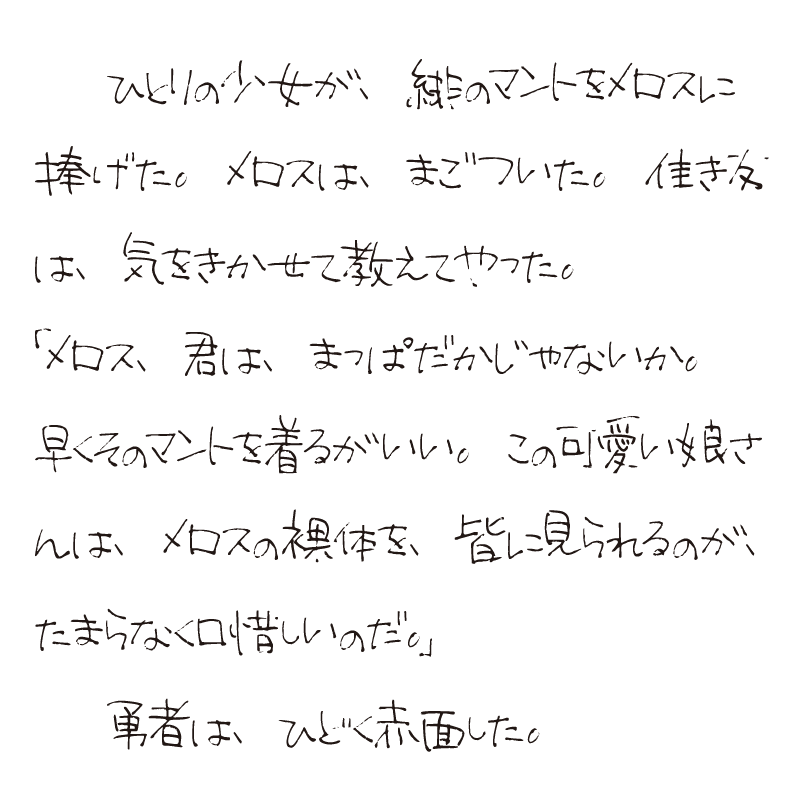 ひとりの少女が、緋のマントをメロスに
捧げた。メロスは、まごついた。佳き友
は、気をきかせて教えてやった。
「メロス、君は、まっぱだかじゃないか。
早くそのマントを着るがいい。この可愛い娘さ
んは、メロスの裸体を、皆に見られるのが、
たまらなく口惜しいのだ。」
勇者は、ひどく赤面した。